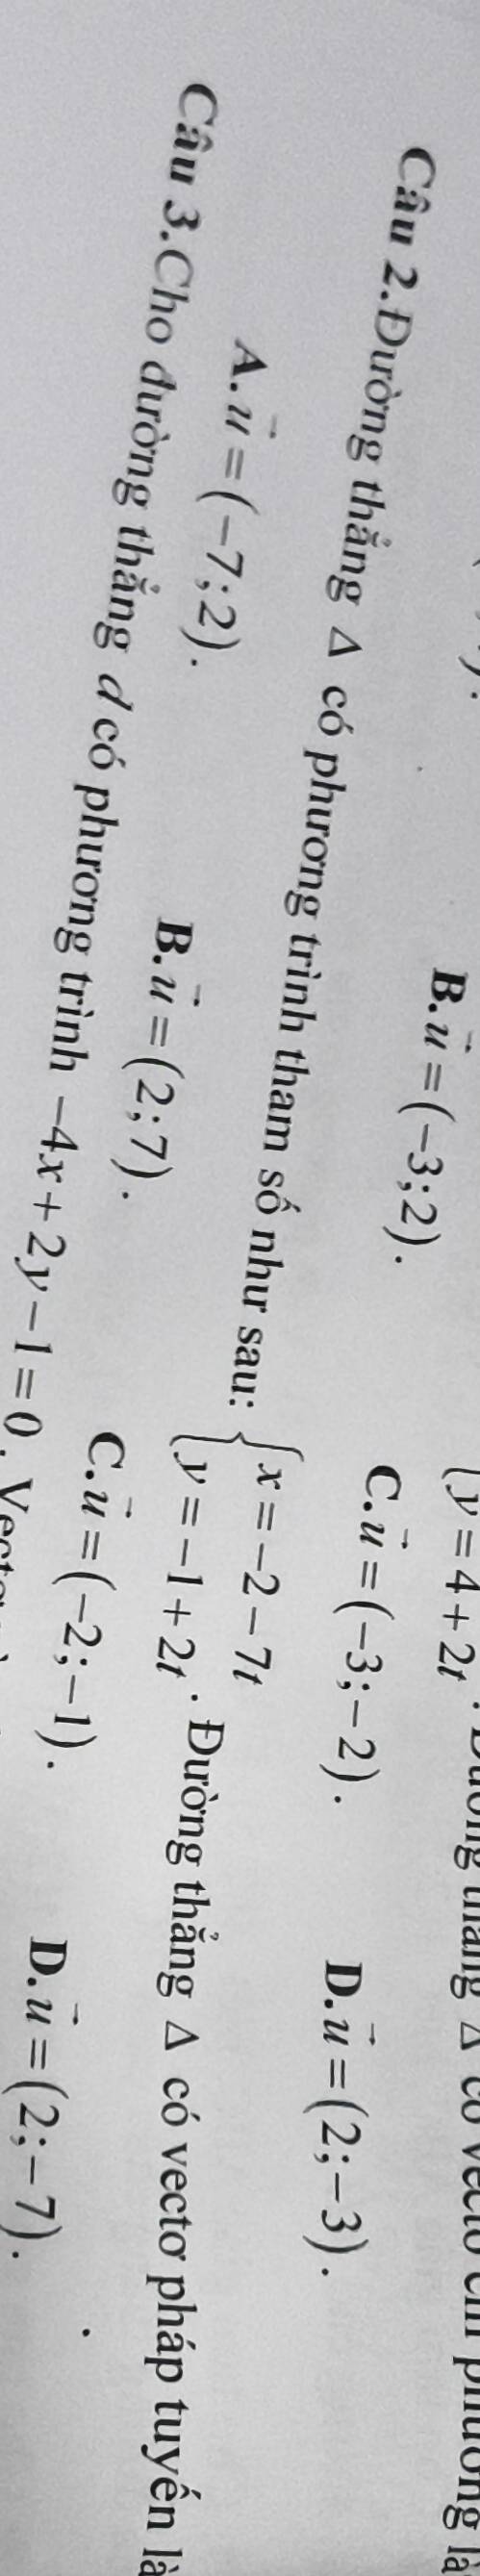 y = 4 + 2t
B. u⃗ = (−3;2). C. u⃗ = (−3;−2). D. u⃗ = (2;−3).
Câu 2. Đường thẳng Δ có phương trình tham số như sau: { x = −2 − 7t y = −1 + 2t . Đường thẳng Δ có vectơ pháp tuyến là
A. u⃗ = (−7;2). B. u⃗ = (2;7). C. u⃗ = (−2;−1). D. u⃗ = (2;−7).
Câu 3. Cho đường thẳng d có phương trình −4x + 2y − 1 = 0.